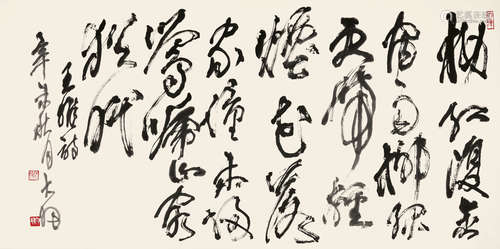 桃紅復含
宿雨柳緑
更帶
煙花落
家僮未掃
鶯啼山客
猶眠
王維詩
辛未秋月大